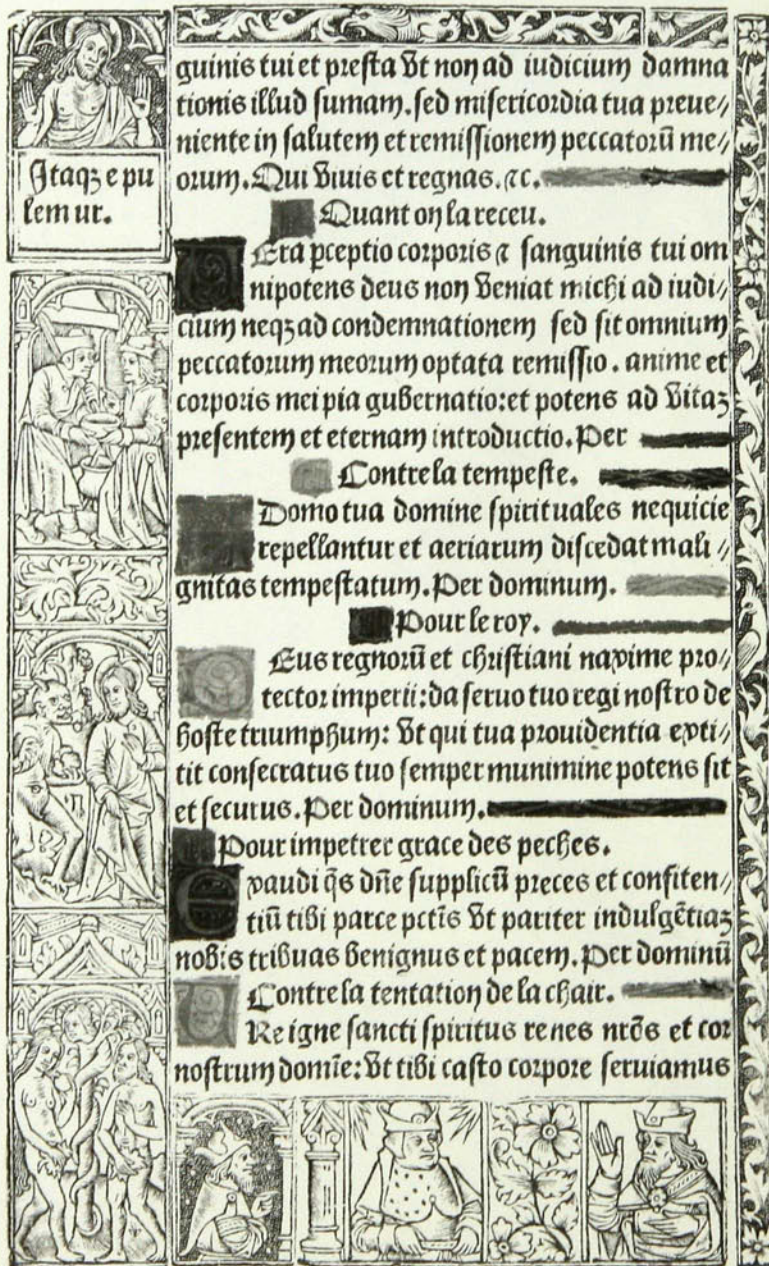 guinis tui et presta Vt non ad iudicium damna
tionis illud sumam. sed misericordia tua preue//
niente in salutem et remissionem peccatorū me//
orum. Qui Viuis et regnas. ⁊c.
Itaqꝫ epu
lemur.
Quant on la receu.
VEra pceptio corporis ⁊ sanguinis tui om
nipotens deus non Veniat michi ad iudi//
cium neqꝫ ad condemnationem sed sit omnium
peccatorum meorum optata remissio. anime et
corporis mei pia gubernatio: et potens ad Vitaꝫ
presentem et eternam introductio. Per
Contre la tempeste.
Domo tua domine spirituales nequicie
repellantur et aeriarum discedat mali//
gnitas tempestatum. Per dominum.
Pour le roy.
DEus regnorū et christiani naxime pro//
tector imperii: da seruo tuo regi nostro de
hoste triumphum: Vt qui tua prouidentia exti//
tit consecratus tuo semper munimine potens sit
et securus. Per dominum.
Pour impetrer grace des peches.
Exaudi q̄s dn̄e supplicū preces et confiten//
tiū tibi parce pctīs Vt pariter indulgētiaꝫ
nobis tribuas benignus et pacem. Per dominū
Contre la tentation de la chair.
VRe igne sancti spiritus renes nrōs et cor
nostrum domīe: Vt tibi casto corpore seruiamus